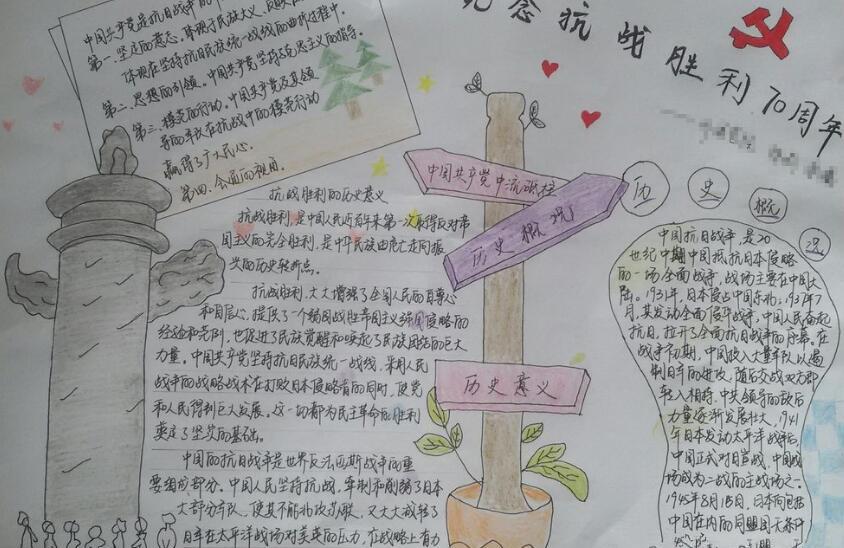 纪念抗战胜利70周年
中国共产党是抗日战争的中
第一.坚定的意志.体现了民族大义.
体现在坚持抗日民族统一战线的曲折过程中.
第二.思想的引领.中国共产党坚持马克思主义的指导.
第三.模范的行动.中国共产党及其领
导的军队在抗战中的模范行动
赢得了广大民心.
第四.
抗战胜利的历史意义
抗战胜利,是中国人民近百年来第一次取得反对帝
国主义的完全胜利,是中华民族由衰亡走向振
兴的历史转折点。
抗战胜利,大大增强了全国人民的自尊心
和自信心,提供了一个弱国战胜帝国主义强国侵略的
经验和先例,也促进了民族觉醒和唤起了民族团结的巨大
力量。中国共产党坚持抗日民族统一战线,采用人民
战争的战略战术在打败日本侵略者的同时,使党
和人民得到巨大发展。这一切都为民主革命的胜利
奠定了坚实的基础。
中国的抗日战争是世界反法西斯战争的重
要组成部分。中国人民坚持抗战,牵制和削弱了日本
大部分军队,使其不能北攻苏联,又大大减轻了
日军在太平洋战场对美英的压力,在战略上有力
中国共产党中流砥柱
历史概况
历史意义
历史概况
中国抗日战争,是20
世纪中期中国抵抗日本侵略
的一场全面战争,战场主要在中国大
陆。1931年,日本侵占中国东北;1937年7
月,其发动全面侵华战争,中国人民奋起
抗日,拉开了全面抗日战争的序幕。在
战争初期,中国投入大量军队以遏
制日军的进攻,随后交战双方即
转入相持,中共领导的敌后
力量逐渐发展壮大,1941
年日本发动太平洋战争后,
中国正式对日宣战,中国战
场成为二战的主战场之一.
1945年8月15日,日本向包括
中国在内的同盟国无条件